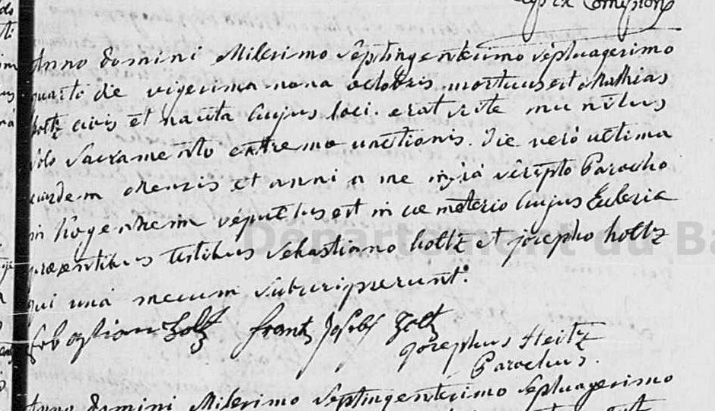 Anno Domini Milesimo septingentesimo septuagesimo
quarto die vigesima nona octobris mortuus est Mathias
holtz civis et nauta hujus loci erat rite munitus
solo Sacramento extremae unctionis. Die vero ultima
ejusdem mensis et anni a me infra scripto Parocho
in sepultus est in coemeterio hujus Ecclesiae
praesentibus testibus Sebastiano holtz et josepho holtz
qui una mecum subscripserunt.
Sebastian Holtz frantz Joseph Holtz
josephus Heitz
Parochus.
Anno Domini Milesimo Septingentesimo Septuagesimo
Département du Ba